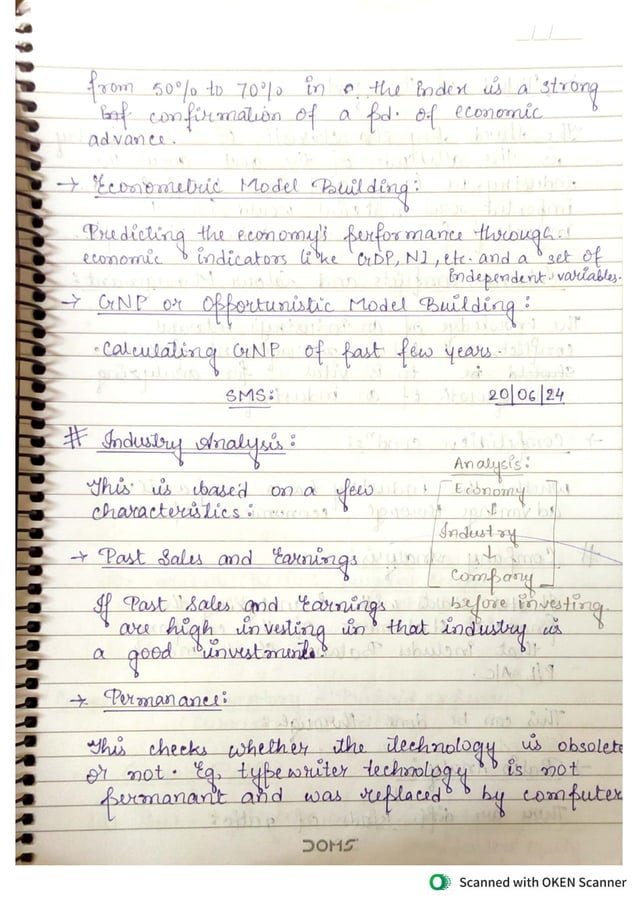 from 50% to 70% in the index is a strong
confirmation of a pd. of economic
advance.
→ Econometric Model Building:
Predicting the economy's performance through
economic indicators like GDP, NI, etc. and a set of
independent variables.
→ GNP or Opportunistic Model Building:
Calculating GNP of past few years.
SMS: 20/06/24
# Industry Analysis:
This is based on a few
characteristics:
Analysis:
Economy
↓
Industry
↓
Company
before investing
→ Past Sales and Earnings
If Past Sales and Earnings
are high investing in that industry is
a good investment.
→ Permanance:
This checks whether the technology is obsolete
or not. Eg, typewriter technology is not
permanant and was replaced by computer
DOMS
Scanned with OKEN Scanner